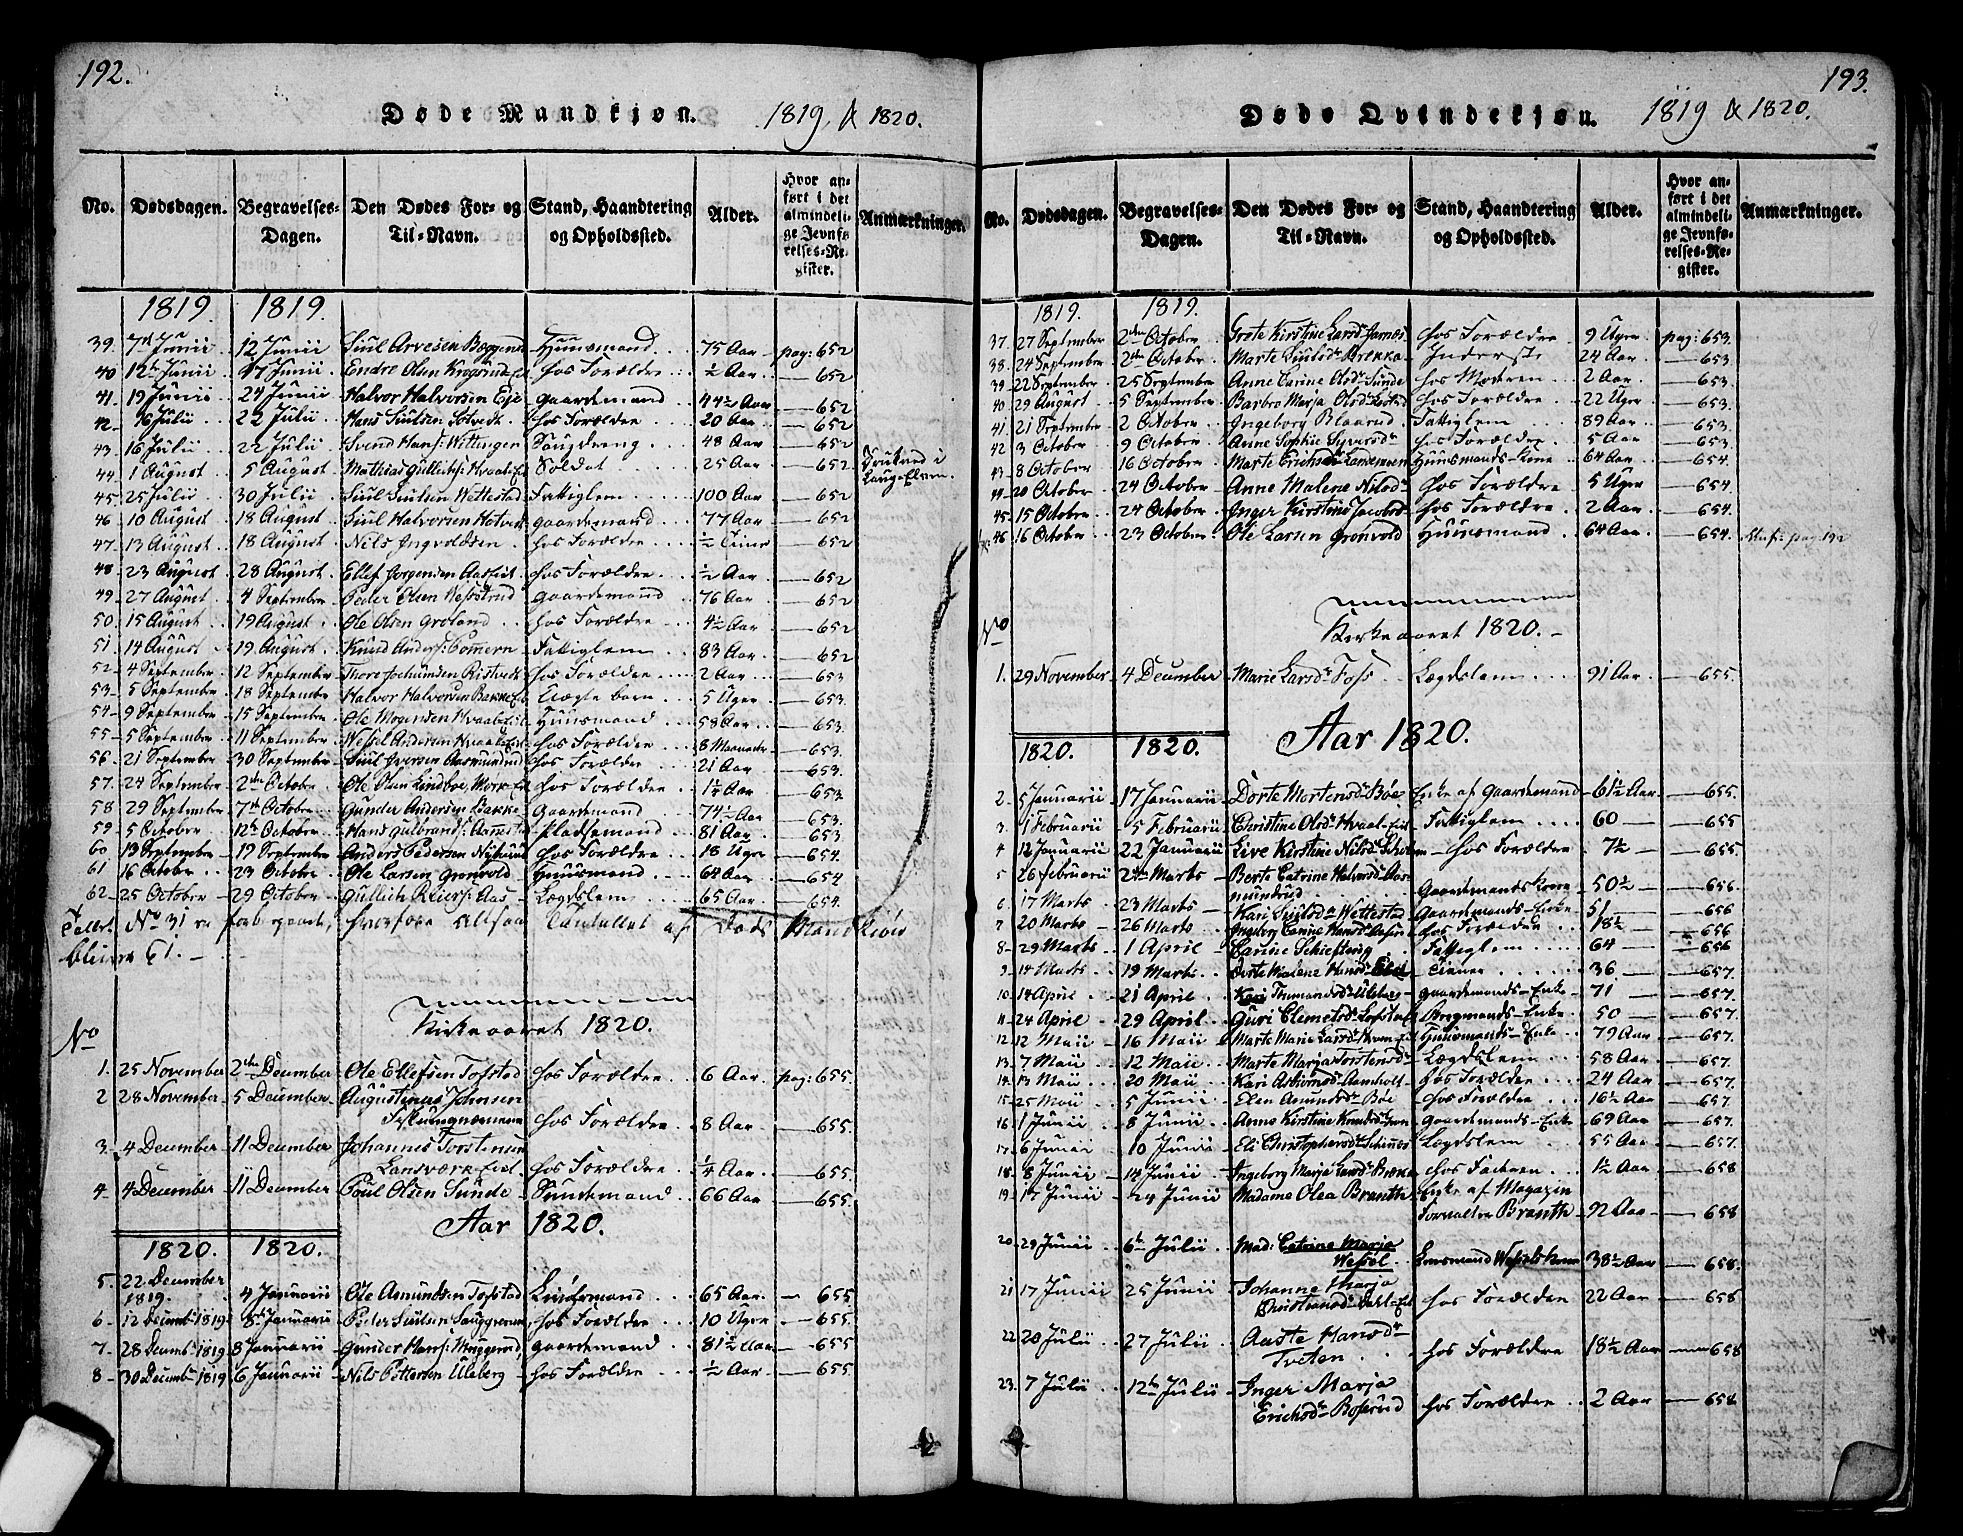 192.
Døde Mandkjøn. 1819 & 1820.
No. Dødsdagen. Begravelses-Dagen. Den Dødes For- og Til-Navn. Stand, Haandtering og Opholdssted. Alder. Hvor anført i det almindelige Jevnførelses-Register. Anmærkninger.
1819. 1819.
39. 7de Junii 12 Junii Siul Arvesen Husmand 75 Aar pag: 652
40 12te Junii 17 Junii Endre Olsen hos Forældre ½ Aar 652
41. 19 Junii 24 Junii Halvor Halvorsen Eje gaardemand 44½ Aar 652
42 16 Julii 22 Julii Hans Siulsen hos Forældre 20 Aar 652
43. 16 Julii 22 Julii Svend Hans: Wittingen 48 Aar 652
44. 1 August 5 August Mathias Soldat 25 Aar 652 Druknet i Laug-Elven.
45. 25 Julii 30 Julii Siul Siulsen Wettestad Fattiglem 100 Aar 652
46 10 August 18 August Siul Halvorsen gaardemand 77 Aar 652
47. 13 August 18 August Nils Ingvoldsen hos Forældre ½ Time 652
48 23 August 28 August Ellef Jorgensen hos Forældre ½ Aar 652
49. 27 August 4 September Peder Olsen gaardemand 76 Aar 652
50. 15 August 19 August Ole Olsen Groland hos Forældre 4½ Aar 652
51. 14 August 19 August Knud Anders: Fattiglem 83 Aar 652
52 4 September 12 September Thore hos Forældre 2 Aar 653
53 5 September 18 September Halvor Halvorsen Uægte barn 5 Uger 653
54 9 September 15 September Ole Mogensen Huusmand 58 Aar 653.
55 5 September 11 September Wessel Andersen hos Forældre 8 Maaneder 653.
56 21 September 30 September Siul Iversen Aasmundrud hos Forældre 21 Aar 653.
57. 24 September 2den October Ole Olsen hos Forældre 1½ Aar 653
58 29 September 7de October Gunder Andersen Bakke Gaardemand 74½ Aar 653.
59 5 October 12te October Hans Gulbrands: Pladsemand 81 Aar 653
60 13 September 19 September Anders Pedersen hos Forældre 18 Uger 654.
61 16 October 23 October Ole Larsen Grønvold Huusmand 64 Aar 654
62 25 October 29 October Gullich Reiers: Aas Lægdslem 65 Aar 654.
Tallet No 31 er forbigaaet, hvorfore altsaa Tantallet af Døde Mandkiøn
bliver 61.
Kirkeaaret 1820.
No
1. 25 November 2den December Ole Ellefsen Tofstad hos Forældre 6 Aar pag: 655
2 28 November 5 December Augustinus Johnsen
hos Forældre 8 Aar 655.
3. 4 December 11 December Johannes Torstensen
hos Forældre ¼ Aar 655
4 4 December 11 December Poul Olsen Sunde Sundemand 66 Aar 655.
Aar 1820.
1820. 1820.
5. 22 December
1819. 4 Januarii Ole Amundsen Tofstad 65 Aar 655
6 12 Decemb: 1819 8de Januarii Peder Siulsen hos Forældre 10 Uger 655.
7 28 Decemb: 1819 8 Januarii Gunder Hans: gaardemand 81½ Aar 655.
8 30 Decemb: 1819 6 Januarii Nils Pettersen Uleberg hos Forældre ½ Aar 655.
193.
Døde Qvindekjøn. 1819 & 1820.
No. Dødsdagen. Begravelses-Dagen. Den Dødes For- og Til-Navn. Stand, Haandtering og Opholdssted. Alder. Hvor anført i det almindelige Jevnførelses-Register. Anmærkninger.
1819. 1819.
37. 27 September 2den October Grete Kirstine Larsdr hos Forældre 9 Uger pag: 653.
38. 24 September 2den October Marte Siulsdr Brekke Inderste 24 Aar 653
39 22 September 25 September Anne Carine Olsdr Sunde hos Modren 2 Aar 653.
40 29 August 5 September Barbro Marja Olsdr hos Forældre 22 Uger 653.
41 21 September 2 October Ingeborg Blaarud Fattiglem 89 Aar 653
42 3 October 9 October Anne Sophie Syversdr hos Forældre 5 Aar 653
43 8 October 16 October Marte Erichsdr Huusmands-Kone 64 Aar 654.
44 20 October 24 October Anne Malene Nilsdr hos Forældre 5 Uger 654
45 15 October 24 October Inger Kirstine Jacobsdr hos Forældre 2 Aar 654.
46 16 October 23 October Ole Larsen Grønvold Huusmand 64 Aar 654. pag 192
Kirkeaaret 1820.
No
1. 29 November 4 December Marie Larsdr Foss Lægdslem 91 Aar 655.
Aar 1820.
1820. 1820.
2. 5 Januarii 17 Januarii Dorte Mortensdr Bøe Enke af Gaardemand 61½ Aar 655.
3. 1 Februarii 5 Februarii Christine Olsdr Fattiglem 60 655
4 12 Januarii 22 Januarii Live Kirstine Nilsdr hos Forældre 7½ 655.
5 26 Februarii 2den Marts Berte Catrine Halvorsdr Aasmundrud Gaardemands Kone 50½ 656.
6 17 Marts 23 Marts Kari Siulsdr Wettestad Gaardemands-Enke 51 656
7 20 Marts 26 Marts Ingeborg Carine Hansdr hos Forældre 18½ 656
8 29 Marts 1 April Carine Schieftberg Fattiglem 64 656
9 14 Marts 19 Marts Dorte Malene Hansdr Tiener 36 657.
10 14 April 21 April Kari Ulsberg gaardemands-Enke 71 657.
11 24 April 29 April Guri Clemetsdr Bergmands-Enke 50 657.
12 12 Maii 16 Maii Marte Marie Larsdr Huusmands-Enke 79 Aar 657.
13 7 Maii 12 Maii Marte Marja Torstensdr Lægdslem 58 Aar 657.
14 13 Maii 20 Maii Kari Asbiørnsdr Aamholt hos Forældre 24 Aar 657.
15 25 Maii 5 Junii Elen Amundsdr Bøe hos Forældre 16½ Aar 657
16 1 Junii 8 Junii Anne Kirstine Knudsdr gaardemands-Enke 69 Aar 657.
17 6 Junii 10 Junii Eli Christophersdr Lægdslem 55 Aar 657.
18 8 Junii 14 Junii Ingeborg Marja Larsdr Brekke hos Fadren 1½ Aar 658
19 17 Junii 24 Junii Madame Olea Branth Enke af Magazin
Forvalter Branth 92 Aar 658
20 29 Junii 6te Julii Mad: Catrine Marja
Wessel Lensmand Wessels Kone 38½ Aar 658.
21 17 Junii 25 Junii Johanne Marja
Christiansdr hos Forældre 22 Aar 658
22 20 Julii 27 Julii Aaste Hansdr
Tveten hos Forældre 18½ Aar 658
23. 7 Julii 12te Julii Inger Marja
Erichsdr hos Forældre 2 Aar 658